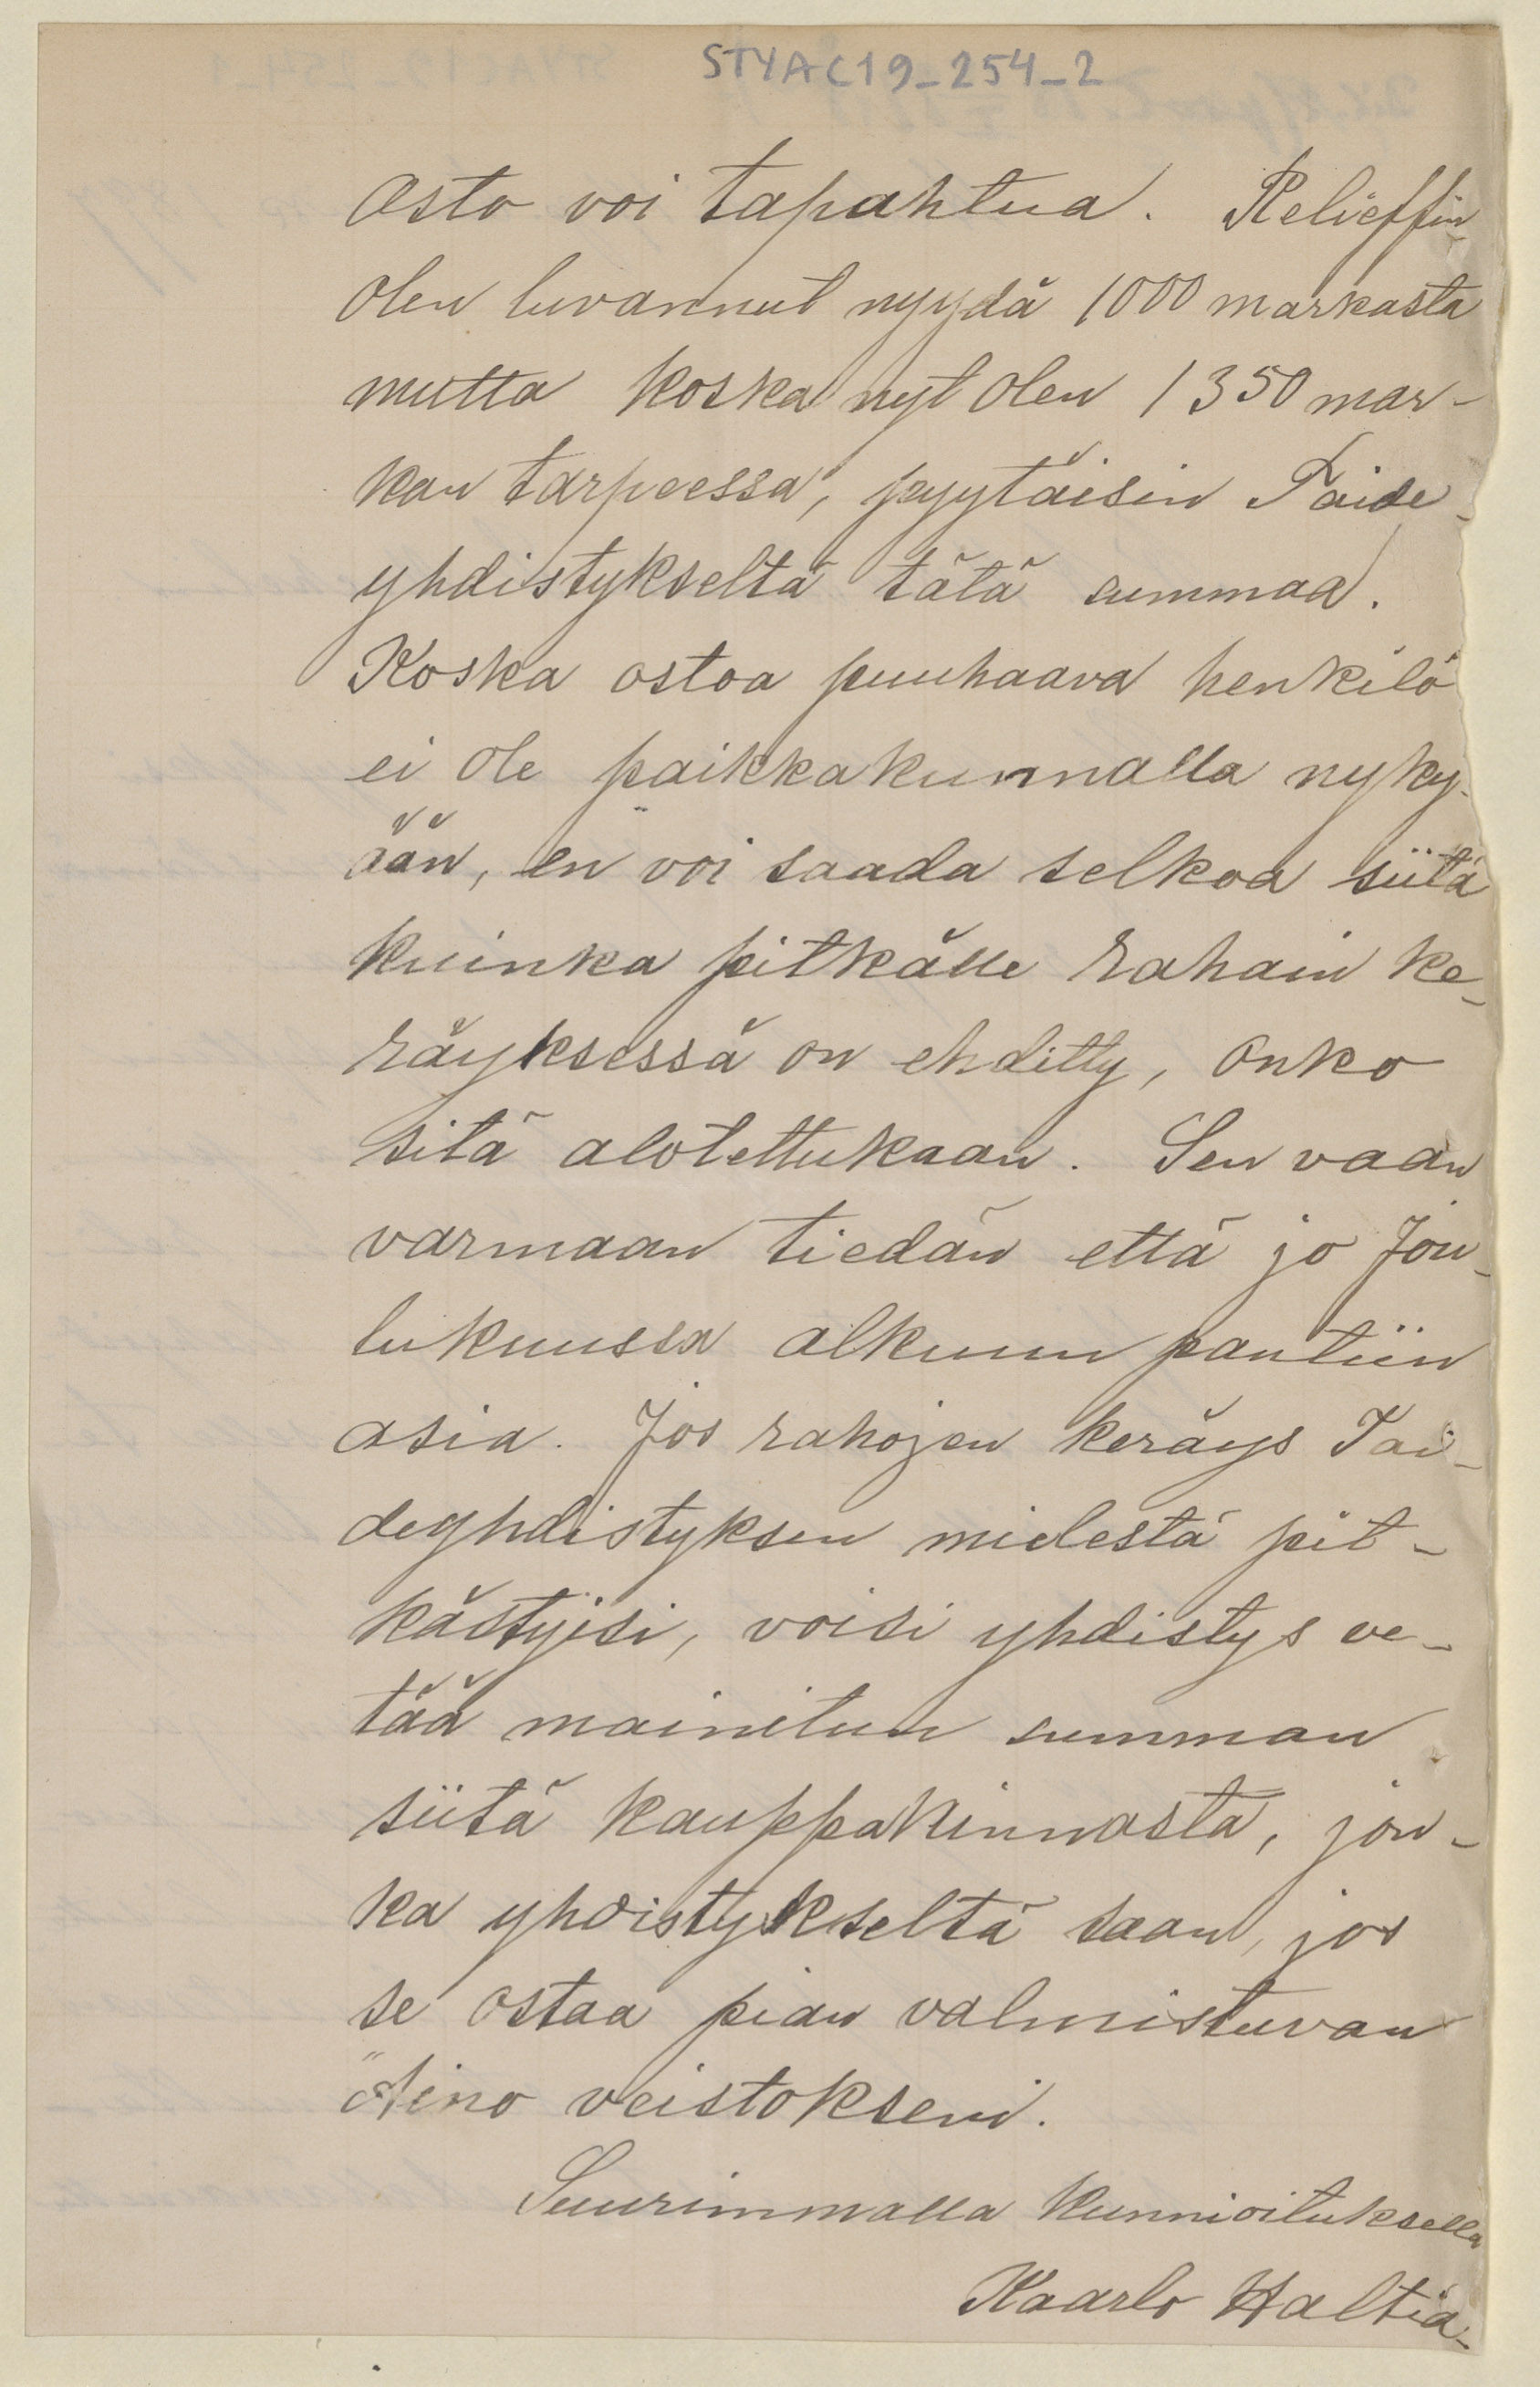 STYAC19_254_2
Osto voi tapahtua. Relieffin
olen luvannut myydä 1000 markasta
mutta koska nyt olen 1350 mar-
kan tarpeessa, pyytäisin Taide-
yhdistykseltä tätä summaa.
Koska ostoa puuhaava henkilö
ei ole paikkakunnalla nyky-
ään, en voi saada selkoa siitä
kuinka pitkälle rahain ke-
räyksessä on ehditty, onko
sitä alotettukaan. Sen vaan
varmaan tiedän että jo Jou-
lukuussa alkuun pantiin
asia. Jos rahojen keräys Tai-
deyhdistyksen mielestä pit-
kästyisi, voisi yhdistys ve-
tää mainitun summan
siitä kauppahinnasta, jon-
ka yhdistykseltä saan, jos
se ostaa pian valmistuvan
"Aino veistokseni.
Suurimmalla kunnioituksella
Kaarlo Haltia-